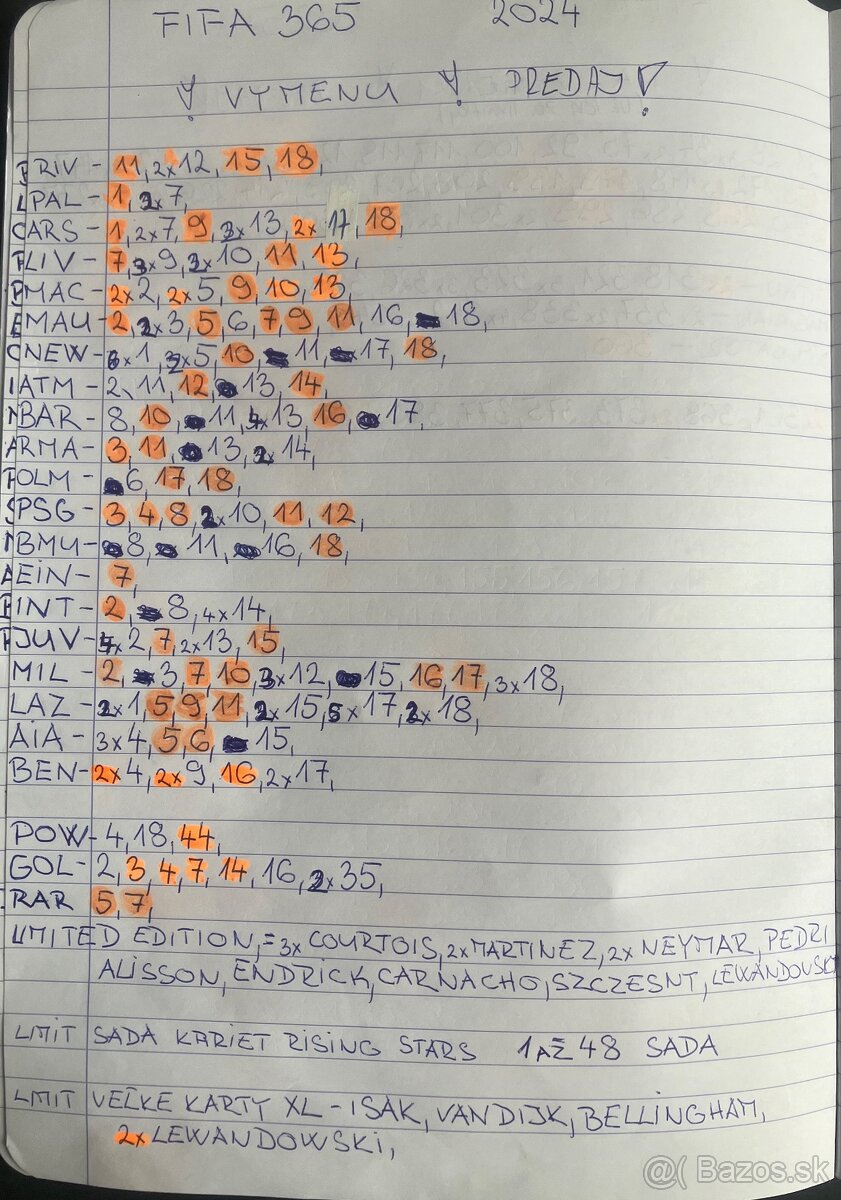 FIFA 365 2024
! VYMENU ! PREDAJ !
RIV - 11, 2x12, 15, 18,
PAL - 1, 2x7,
ARS - 1, 2x7, 9, 3x13, 2x 17, 18,
LIV - 7, 3x9, 3x10, 11, 13,
MAC - 2x2, 2x5, 9, 10, 13,
MAU - 2, 2x3, 5, 6, 7, 9, 11, 16, 18,
NEW - 6x1, 3x5, 10, 11, 17, 18,
ATM - 2, 11, 12, 13, 14,
BAR - 8, 10, 11, 4x13, 16, 17,
RMA - 3, 11, 13, 2x14,
OLM - 6, 17, 18,
PSG - 3, 4, 8, 2x10, 11, 12,
BMU - 8, 11, 16, 18,
EIN - 7,
INT - 2, 8, 4x14,
JUV - 4x2, 7, 2x13, 15,
MIL - 2, 3, 7, 10, 3x12, 15, 16, 17, 3x18,
LAZ - 2x1, 5, 9, 11, 2x15, 5x17, 2x18,
AJA - 3x4, 5, 6, 15,
BEN - 2x4, 2x9, 16, 2x17,
POW - 4, 18, 44,
GOL - 2, 3, 4, 7, 14, 16, 2x35,
RAR 5, 7,
LIMITED EDITION, = 3x COURTOIS, 2x MARTINEZ, 2x NEYMAR, PEDRI
ALISSON, ENDRICK, CARNACHO, SZCZESNT, LEWANDOVSKI
LMIT SADA KARIET RISING STARS 1 AŽ 48 SADA
LMIT VEĽKE KARTY XL - ISAK, VANDIJK, BELLINGHAM,
2x LEWANDOWSKI,
@( Bazos.sk